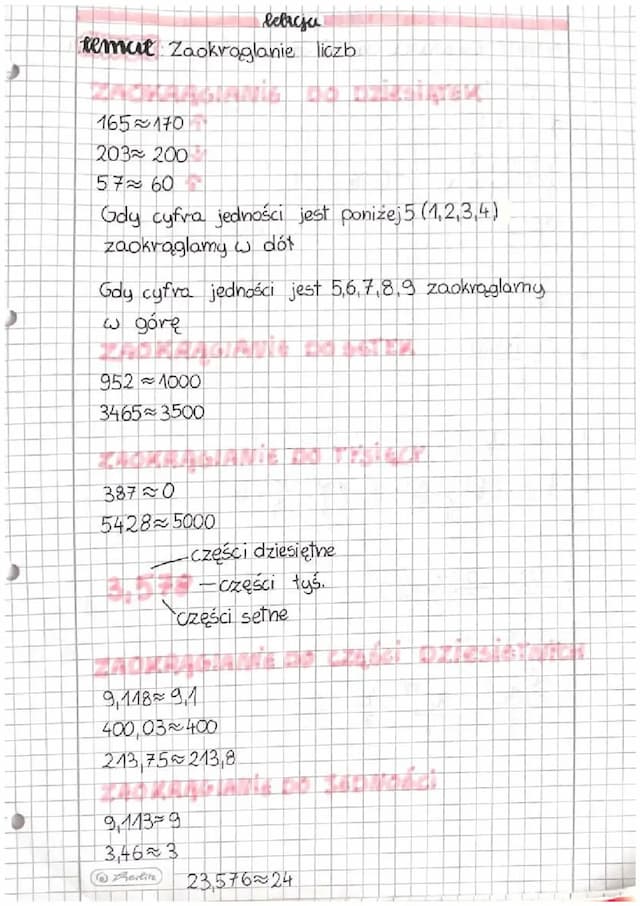 lekcja
temat: Zaokrąglanie liczb
ZAOKRĄGLANIE DO DZIESIĄTEK
165≈170 ↑
203≈ 200 ↓
57≈ 60 ↑
Gdy cyfra jedności jest poniżej 5 (1,2,3,4)
zaokrąglamy w dół
Gdy cyfra jedności jest 5,6,7,8,9 zaokrąglamy
w górę
ZAOKRĄGLANIE DO SETEK
952 ≈ 1000
3465≈3500
ZAOKRĄGLANIE DO TYSIĘCY
387≈0
5428≈5000
części dziesiętne
3,578 – części tyś.
części setne
ZAOKRĄGLANIE DO części DZIESIĘTNYCH
9,118≈ 9,1
400,03≈400
213,75≈213,8
ZAOKRĄGLANIE DO JEDNOŚCI
9,113≈ 9
3,46≈3
23,576≈24